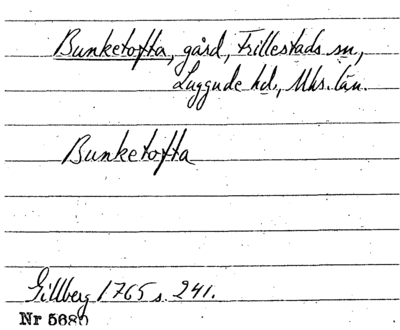 Bunketofta, gård, Frillestads sn.,
Luggude hd., Mhs. län.
Bunketofta
Gillberg 1765 s. 241.
Nr 5680